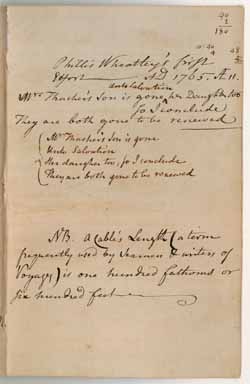 90
2
180
Phillis Wheatley's first
Effort — AD 1765. Æt. 11.
unto Salvation
Mrs Thacher's Son is gone, her Daughter too
So I conclude
They are both gone to be renewed
Mrs Thacher's Son is gone
Unto Salvation
Her daughter too, so I conclude
They are both gone to be renewed
NB. A Cable's Length (a term
frequently used by Seamen & writers of
Voyages) is one hundred fathoms or
six hundred feet —